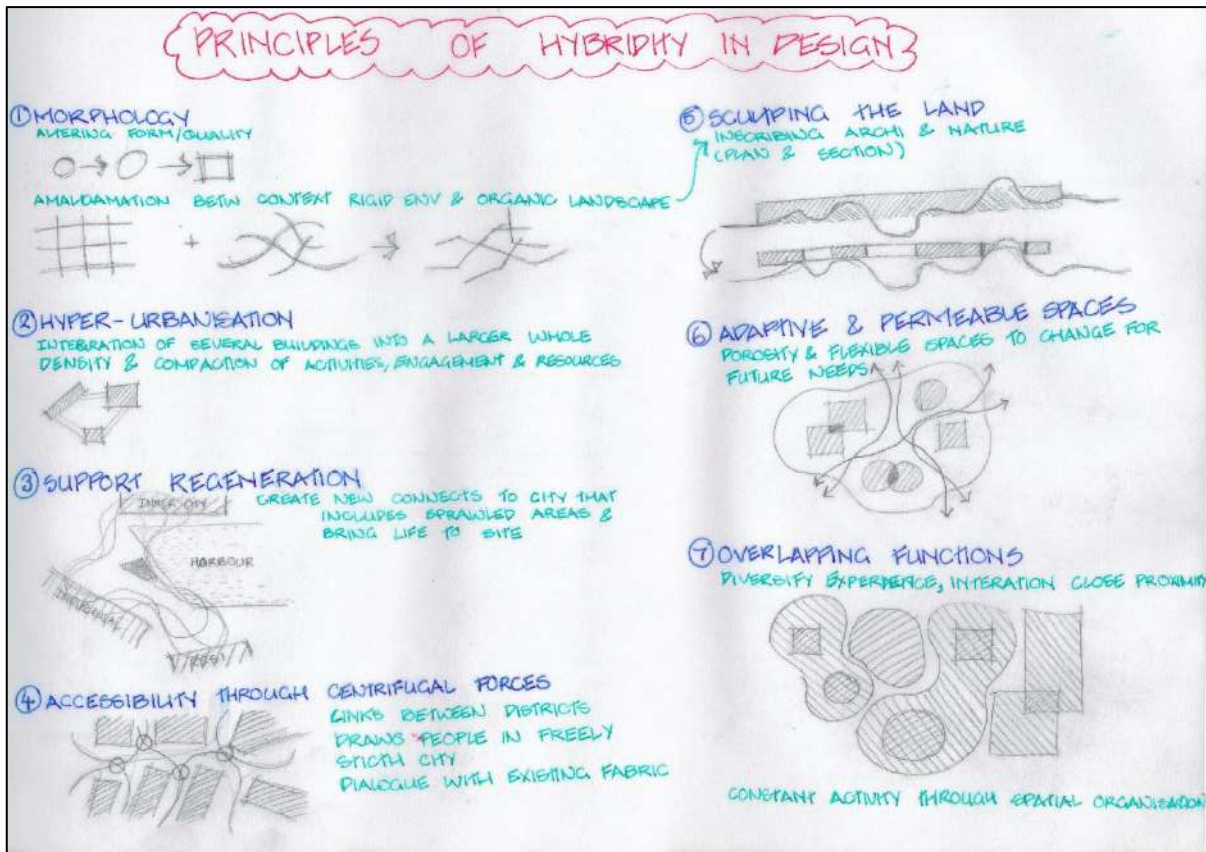 PRINCIPLES OF HYBRIDITY IN DESIGN
① MORPHOLOGY
ALTERING FORM/QUALITY
AMALDAMATION BETW CONTEXT RIGID ENV & ORGANIC LANDSCAPE
② HYPER-URBANISATION
INTEGRATION OF SEVERAL BUILDINGS INTO A LARGER WHOLE
DENSITY & COMPACTION OF ACTIVITIES, ENGAGEMENT & RESOURCES
③ SUPPORT REGENERATION
INNER CITY
CREATE NEW CONNECTS TO CITY THAT
INCLUDES SPRAWLED AREAS &
BRING LIFE TO SITE
HARBOUR
RESI
④ ACCESSIBILITY THROUGH CENTRIFUGAL FORCES
LINKS BETWEEN DISTRICTS
DRAWS PEOPLE IN FREELY
STICTH CITY
DIALOGUE WITH EXISTING FABRIC
⑤ SCULPTING THE LAND
INSCRIBING ARCHI & NATURE
(PLAN & SECTION)
⑥ ADAPTIVE & PERMEABLE SPACES
POROSITY & FLEXIBLE SPACES TO CHANGE FOR
FUTURE NEEDS
⑦ OVERLAPPING FUNCTIONS
DIVERSIFY EXPERIENCE, INTERATION CLOSE PROXIMI
CONSTANT ACTIVITY THROUGH SPATIAL ORGANIZATION